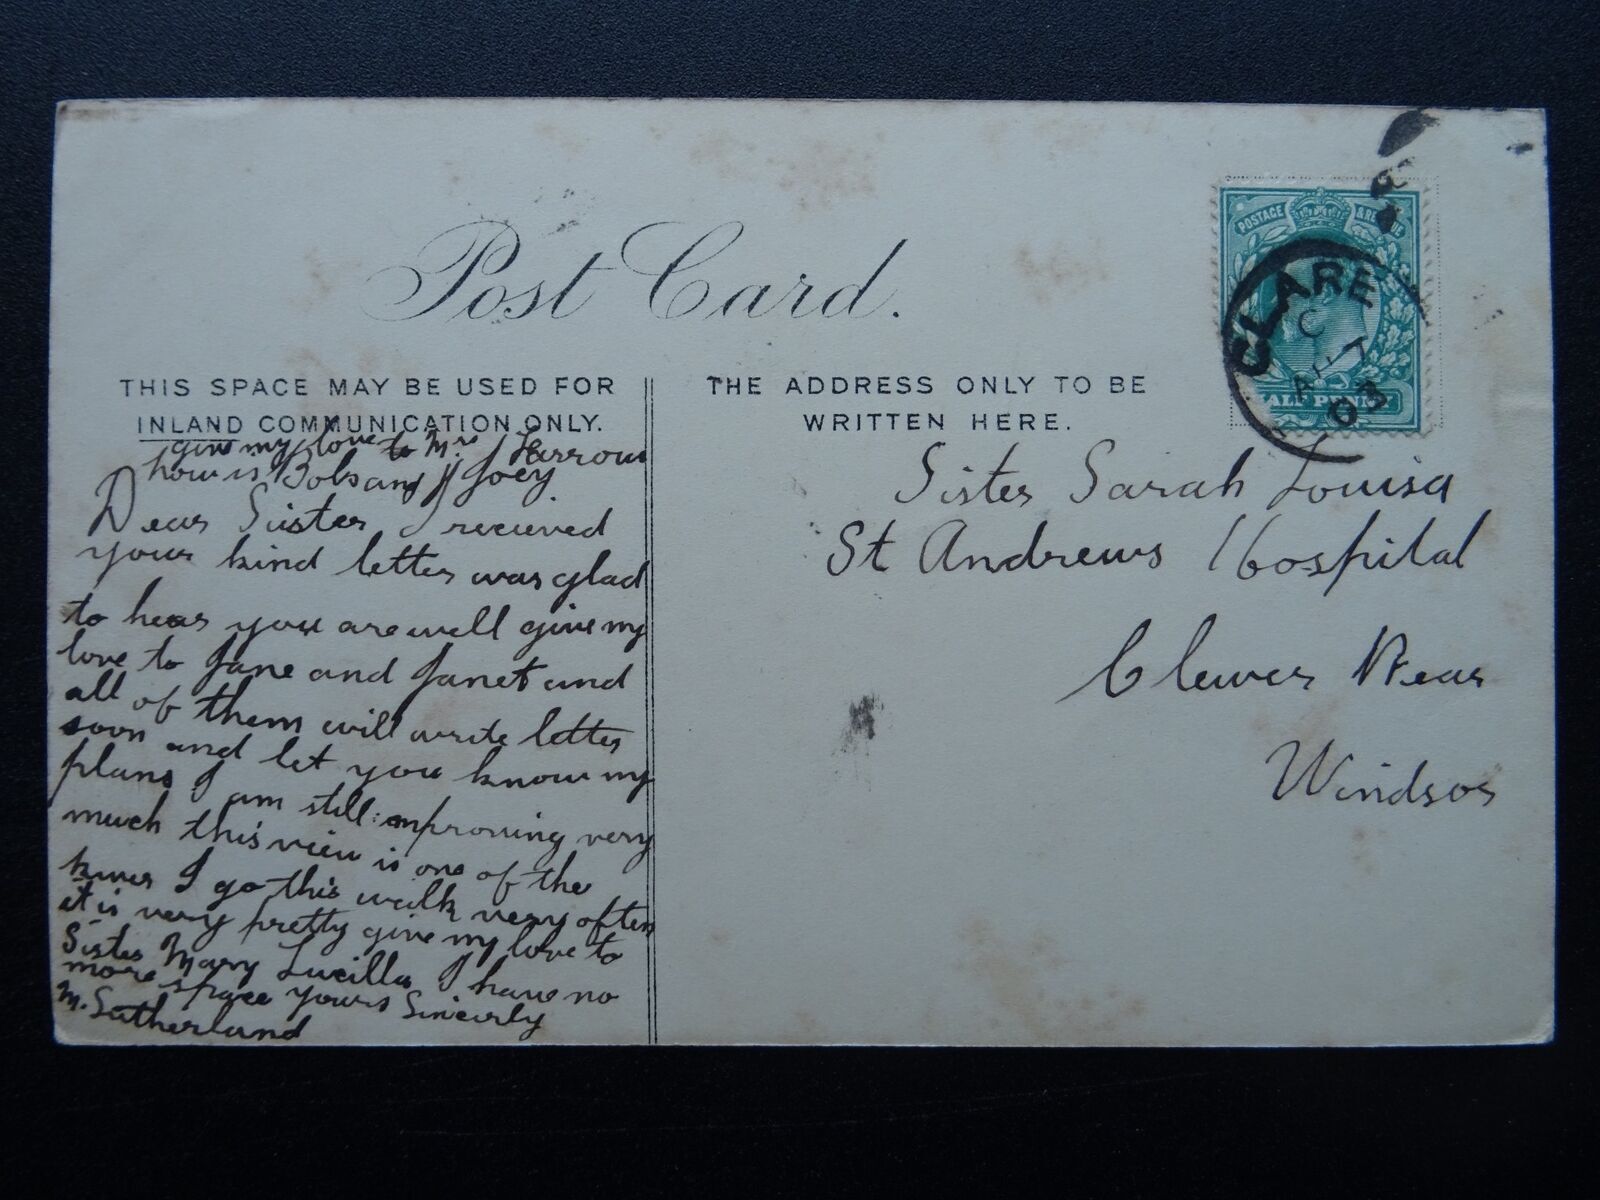 Post Card.
THIS SPACE MAY BE USED FOR
INLAND COMMUNICATION ONLY.
THE ADDRESS ONLY TO BE
WRITTEN HERE.
POSTAGE & REVENUE
HALF PENNY
CLARE
C
17
03
give my love to Mrs Farrow
how is Bobs and Joey
Dear Sister I recieved
your kind letter was glad
to hear you are well give my
love to Jane and Janet and
all of them will write letter
soon and let you know my
plans I am still improving very
much this view is one of the
I go this walk very often
it is very pretty give my love to
Sister Mary Lucilla I have no
more space yours Sincerly
M. Sutherland
Sister Sarah Louisa
St Andrews Hospital
Clewer Near
Windsor